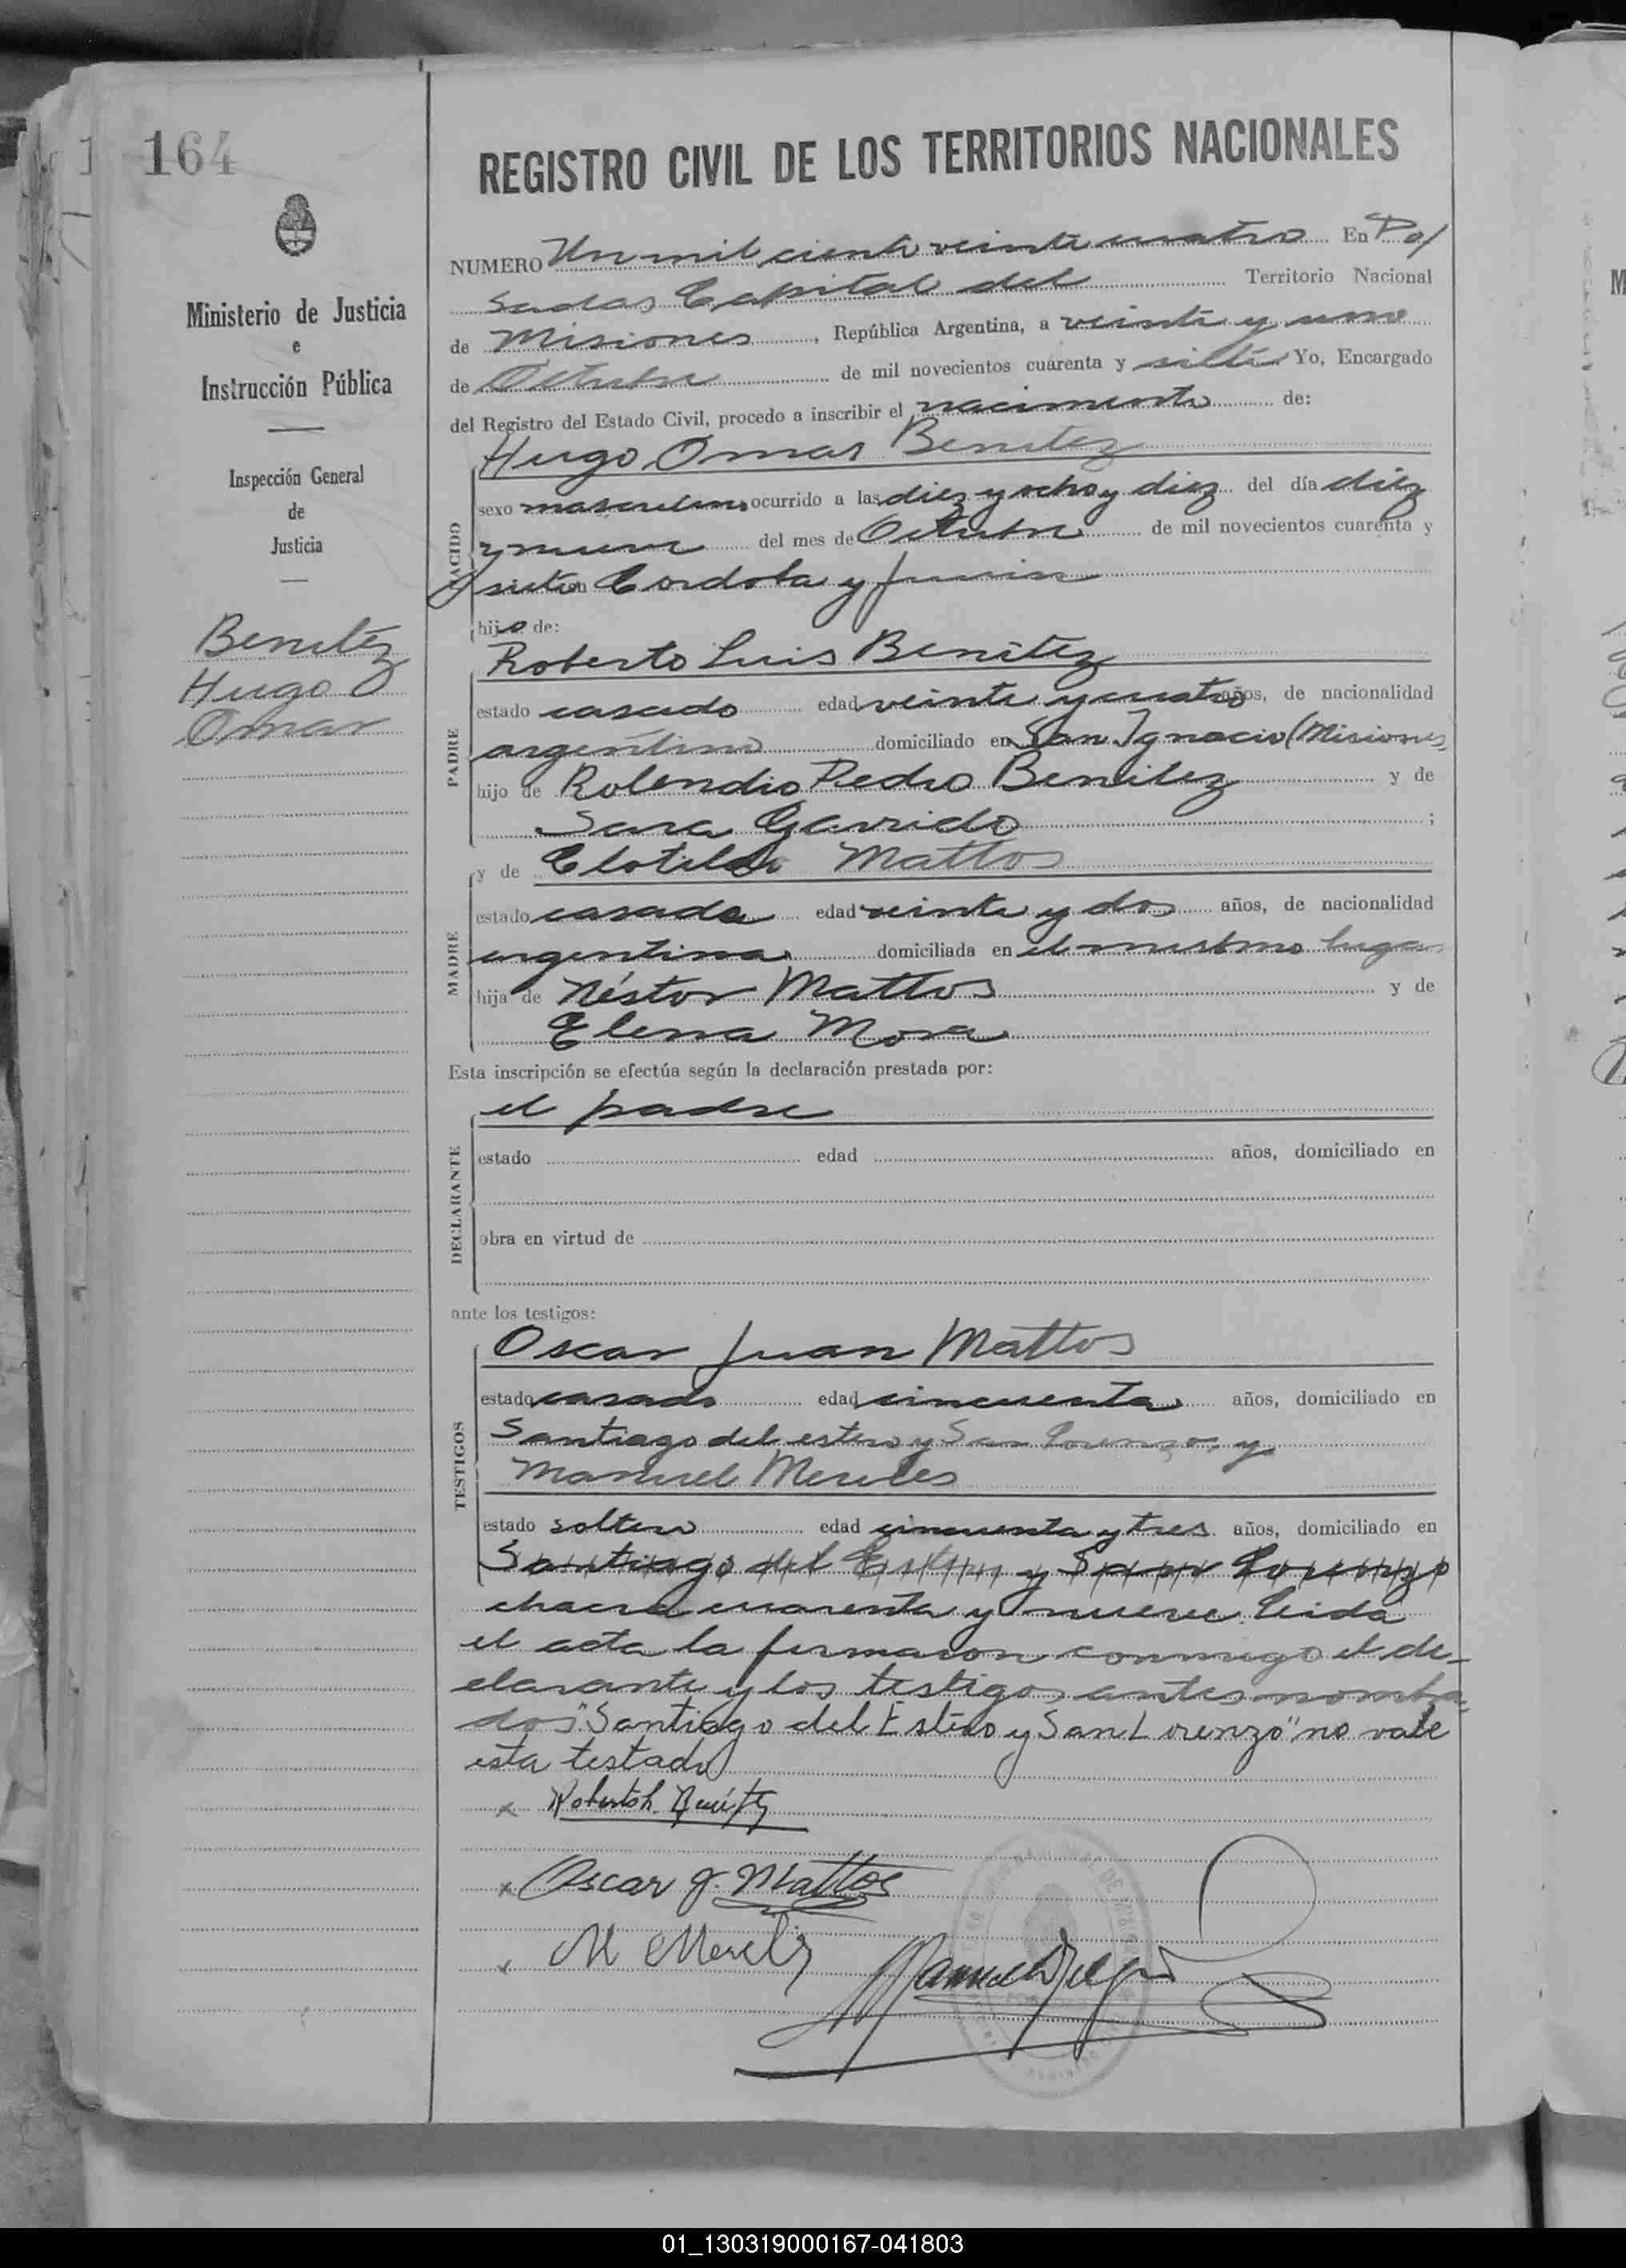 164
REGISTRO CIVIL DE LOS TERRITORIOS NACIONALES
Ministerio de Justicia
e
Instrucción Pública
Inspección General
de
Justicia
Benitez
Hugo
Omar
NUMERO Un mil ciento veinte cuatro En Po/
sadas Capital del Territorio Nacional
de Misiones, República Argentina, a veinte y uno
de Octubre de mil novecientos cuarenta y siete Yo, Encargado
del Registro del Estado Civil, procedo a inscribir el nacimiento de:
Hugo Omar Benitez
NACIDO
sexo masculino ocurrido a las diez y ocho y diez del día diez
y nueve del mes de Octubre de mil novecientos cuarenta y
siete en Cordoba y Junin
hijo de:
Roberto Luis Benitez
PADRE
estado casado edad veinte y cuatro años, de nacionalidad
argentino domiciliado en San Ignacio (Misiones
hijo de Rolendio Pedro Benitez y de
Sara Garrido;
y de Clotilde Mattos
MADRE
estado casada edad veinte y dos años, de nacionalidad
argentina domiciliada en el mismo lugar
hija de Néstor Mattos y de
Elena Mora
Esta inscripción se efectúa según la declaración prestada por:
el padre
DECLARANTE
estado edad años, domiciliado en
obra en virtud de
ante los testigos:
Oscar Juan Mattos
TESTIGOS
estado casado edad cincuenta años, domiciliado en
Santiago del estero y San Lorenzo, y
Manuel Mereles
estado soltero edad cincuenta y tres años, domiciliado en
Santiago del Estero y San Lorenzo
chacra cuarenta y nueve. Leida
el acta la firmaron conmigo el de-
clarante y los testigos antes nombra-
dos "Santiago del Estero y San Lorenzo" no vale
esta testado
x Roberto L. Benítez
x Oscar J. Mattos
x M Mereles
01_130319000167-041803